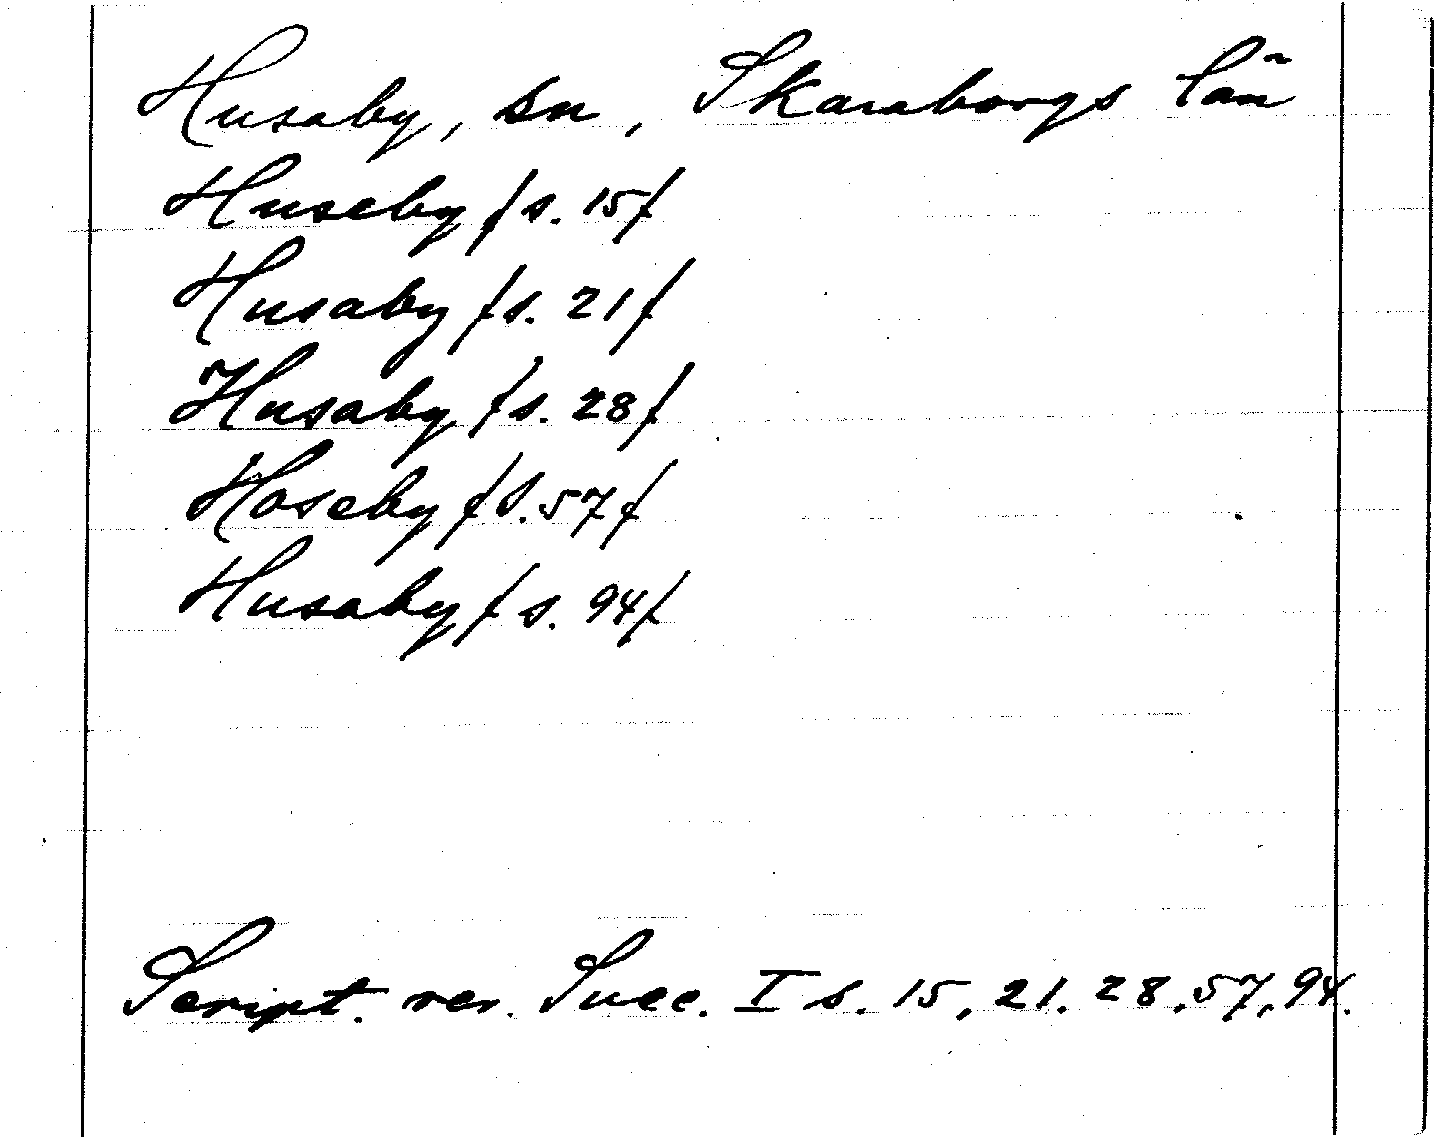 Husaby, sn, Skaraborgs län
Huseby /s. 15/
Husaby /s. 21/
Husaby /s. 28/
Hoseby /s. 57/
Husaby /s. 94/
Script. rer. Suec. I s. 15, 21. 28, 57, 94.